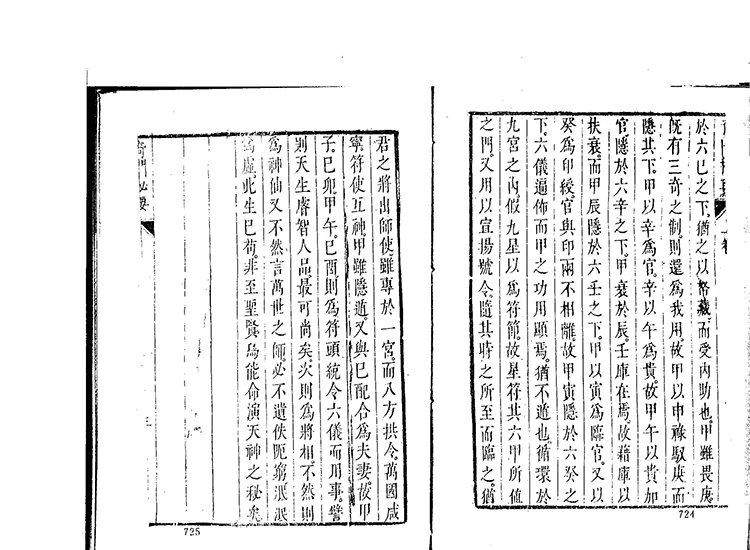 於六己之下猶之以帑藏而受內助也甲雖畏庚
旣有三奇之制則還爲我用故甲以申祿馭庚而
隱其下甲以辛爲官辛以午爲貴故甲午以貴如
官隱於六辛之下甲衰於辰壬庫在焉故藉庫以
扶衰而甲辰隱於六壬之下甲以寅爲臨官又以
癸爲印綬官與印兩不相離故甲寅隱於六癸之
下六儀遍佈而甲之功用顯焉猶不遁也循環於
九宮之內假九星以爲符節故星符其六甲所値
之門又用以宣揚號令隨其時之所至而臨之猶
724
君之將出師使雖專於一宮而八方拱令萬國咸
寧符使互神甲雖隱遁又與己配合爲夫妻故甲
子己卯甲午己酉則爲符頭統令六儀而用事譬
則天生睿智人品最可尚矣次則爲將相不然則
爲神仙又不然言萬世之師必不遺佚阨窮泯泯
爲虛此生已苟非至聖賢烏能命演天神之秘矣
奇門 必要
725